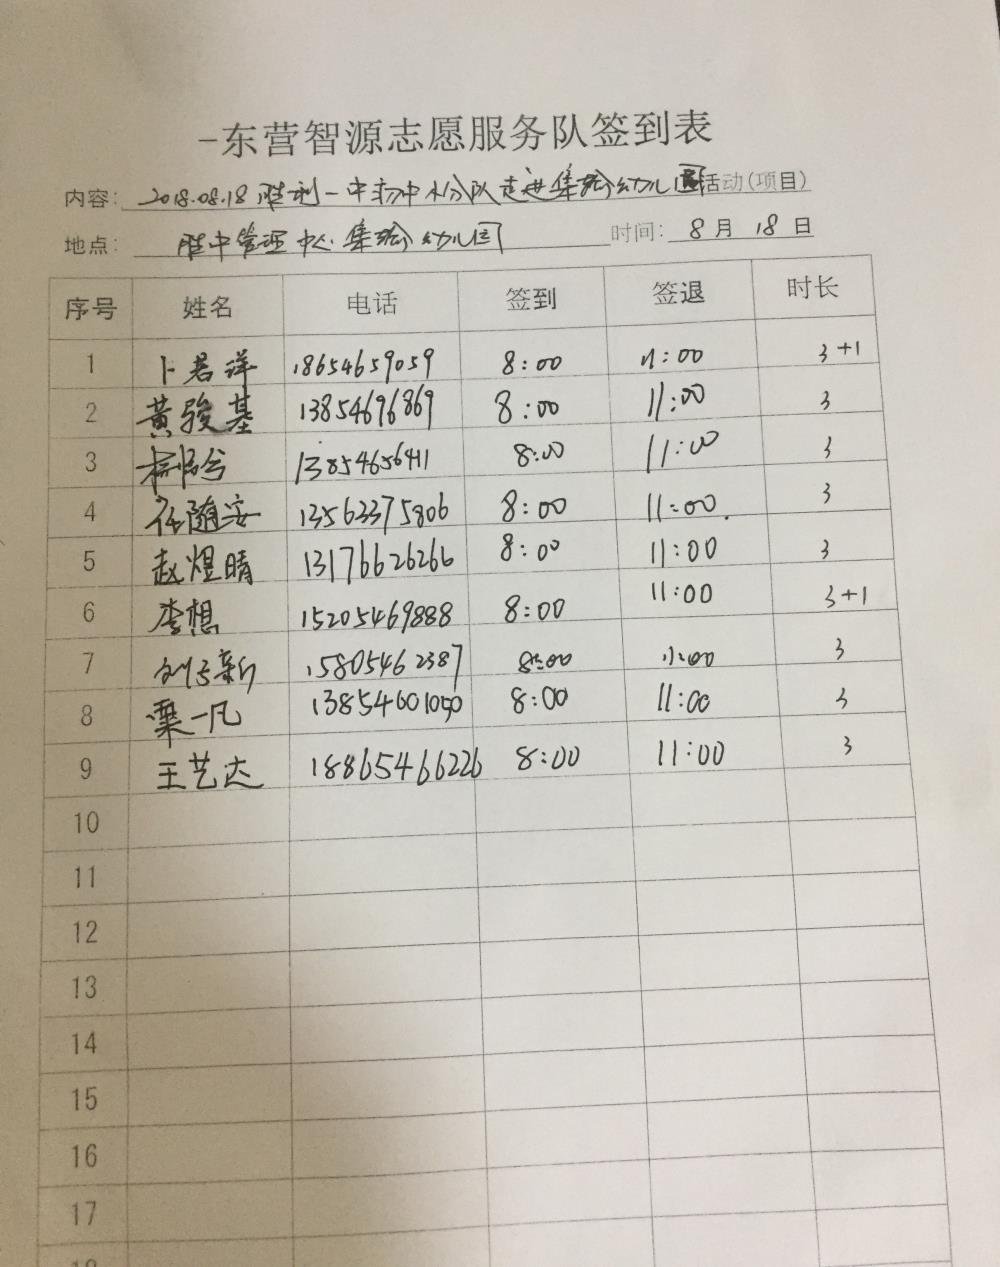 -东营智源志愿服务队签到表
内容: 2018.08.18 胜利一中初中小分队走进集输幼儿园活动(项目)
地点: 胜中管理中心集输幼儿园 时间: 8 月 18 日
序号 姓名 电话 签到 签退 时长
1 卜若洋 18654659059 8:00 11:00 3+1
2 黄骏基 13854696869 8:00 11:00 3
3 13854656411 8:00 11:00 3
4 任随安 13563375806 8:00 11:00 3
5 赵煜晴 13176626266 8:00 11:00 3
6 李想 15205469888 8:00 11:00 3+1
7 15805462387 8:00 11:00 3
8 栗一凡 13854601050 8:00 11:00 3
9 王艺达 18865466226 8:00 11:00 3
10
11
12
13
14
15
16
17